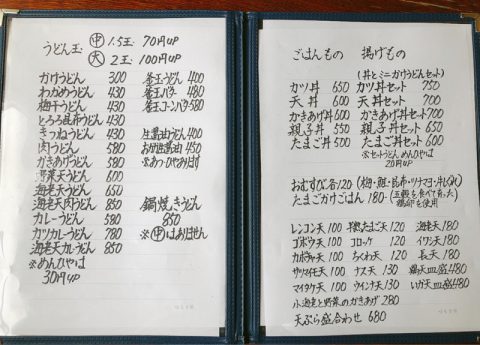 うどん玉: ㊥ 1.5玉: 70円UP
㊅ 2玉: 100円UP
かけうどん 300
わかめうどん 430
梅干うどん 430
とろろ昆布うどん 430
きつねうどん 430
肉うどん 580
かきあげうどん 580
野菜天うどん 600
海老天うどん 650
海老天肉うどん 850
カレーうどん 580
カツカレーうどん 780
海老天カレーうどん 850
※めんひやは
30円UP
釜玉うどん 400
釜玉バター 480
釜玉コーンバター 580
生醤油うどん 400
おろし生醤油 450
※あつ・ひやあります
鍋焼きうどん
850
※㊥はありません
ごはんもの
カツ丼 650
天丼 600
かきあげ丼 600
親子丼 550
たまご丼 500
揚げもの
(丼とミニかけうどんセット)
カツ丼セット 750
天丼セット 700
かきあげ丼セット 700
親子丼セット 650
たまご丼セット 600
※セットうどんめんひやは
20円UP
おむすび各120 (梅・鮭・昆布・ツナマヨ・牛しぐれ)
たまごかけごはん 180 (五穀を食べて育った
鶏卵を使用
レンコン天 100 半熟たまご天 120 海老天 180
ゴボウ天 100 コロッケ 120 イワシ天 180
カボチャ天 100 ちくわ天 120 長天 180
サツマイモ天 100 ナス天 130 鶏天皿盛 480
マイタケ天 100 ウインナ天 130 いか天皿盛 480
小海老と野菜のかきあげ 280
天ぷら盛合わせ 680